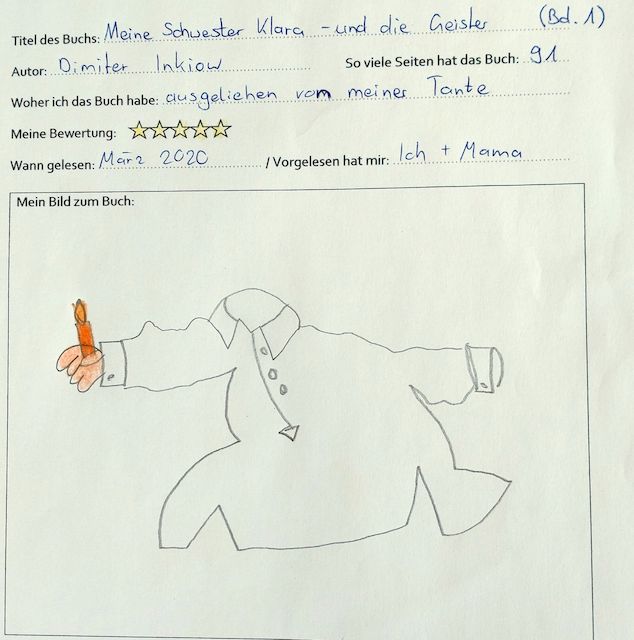 Titel des Buchs: Meine Schwester Klara - und die Geister (Bd. 1)
Autor: Dimiter Inkiow So viele Seiten hat das Buch: 91
Woher ich das Buch habe: ausgeliehen von meiner Tante
Meine Bewertung:
Wann gelesen: März 2020 / Vorgelesen hat mir: Ich + Mama
Mein Bild zum Buch: